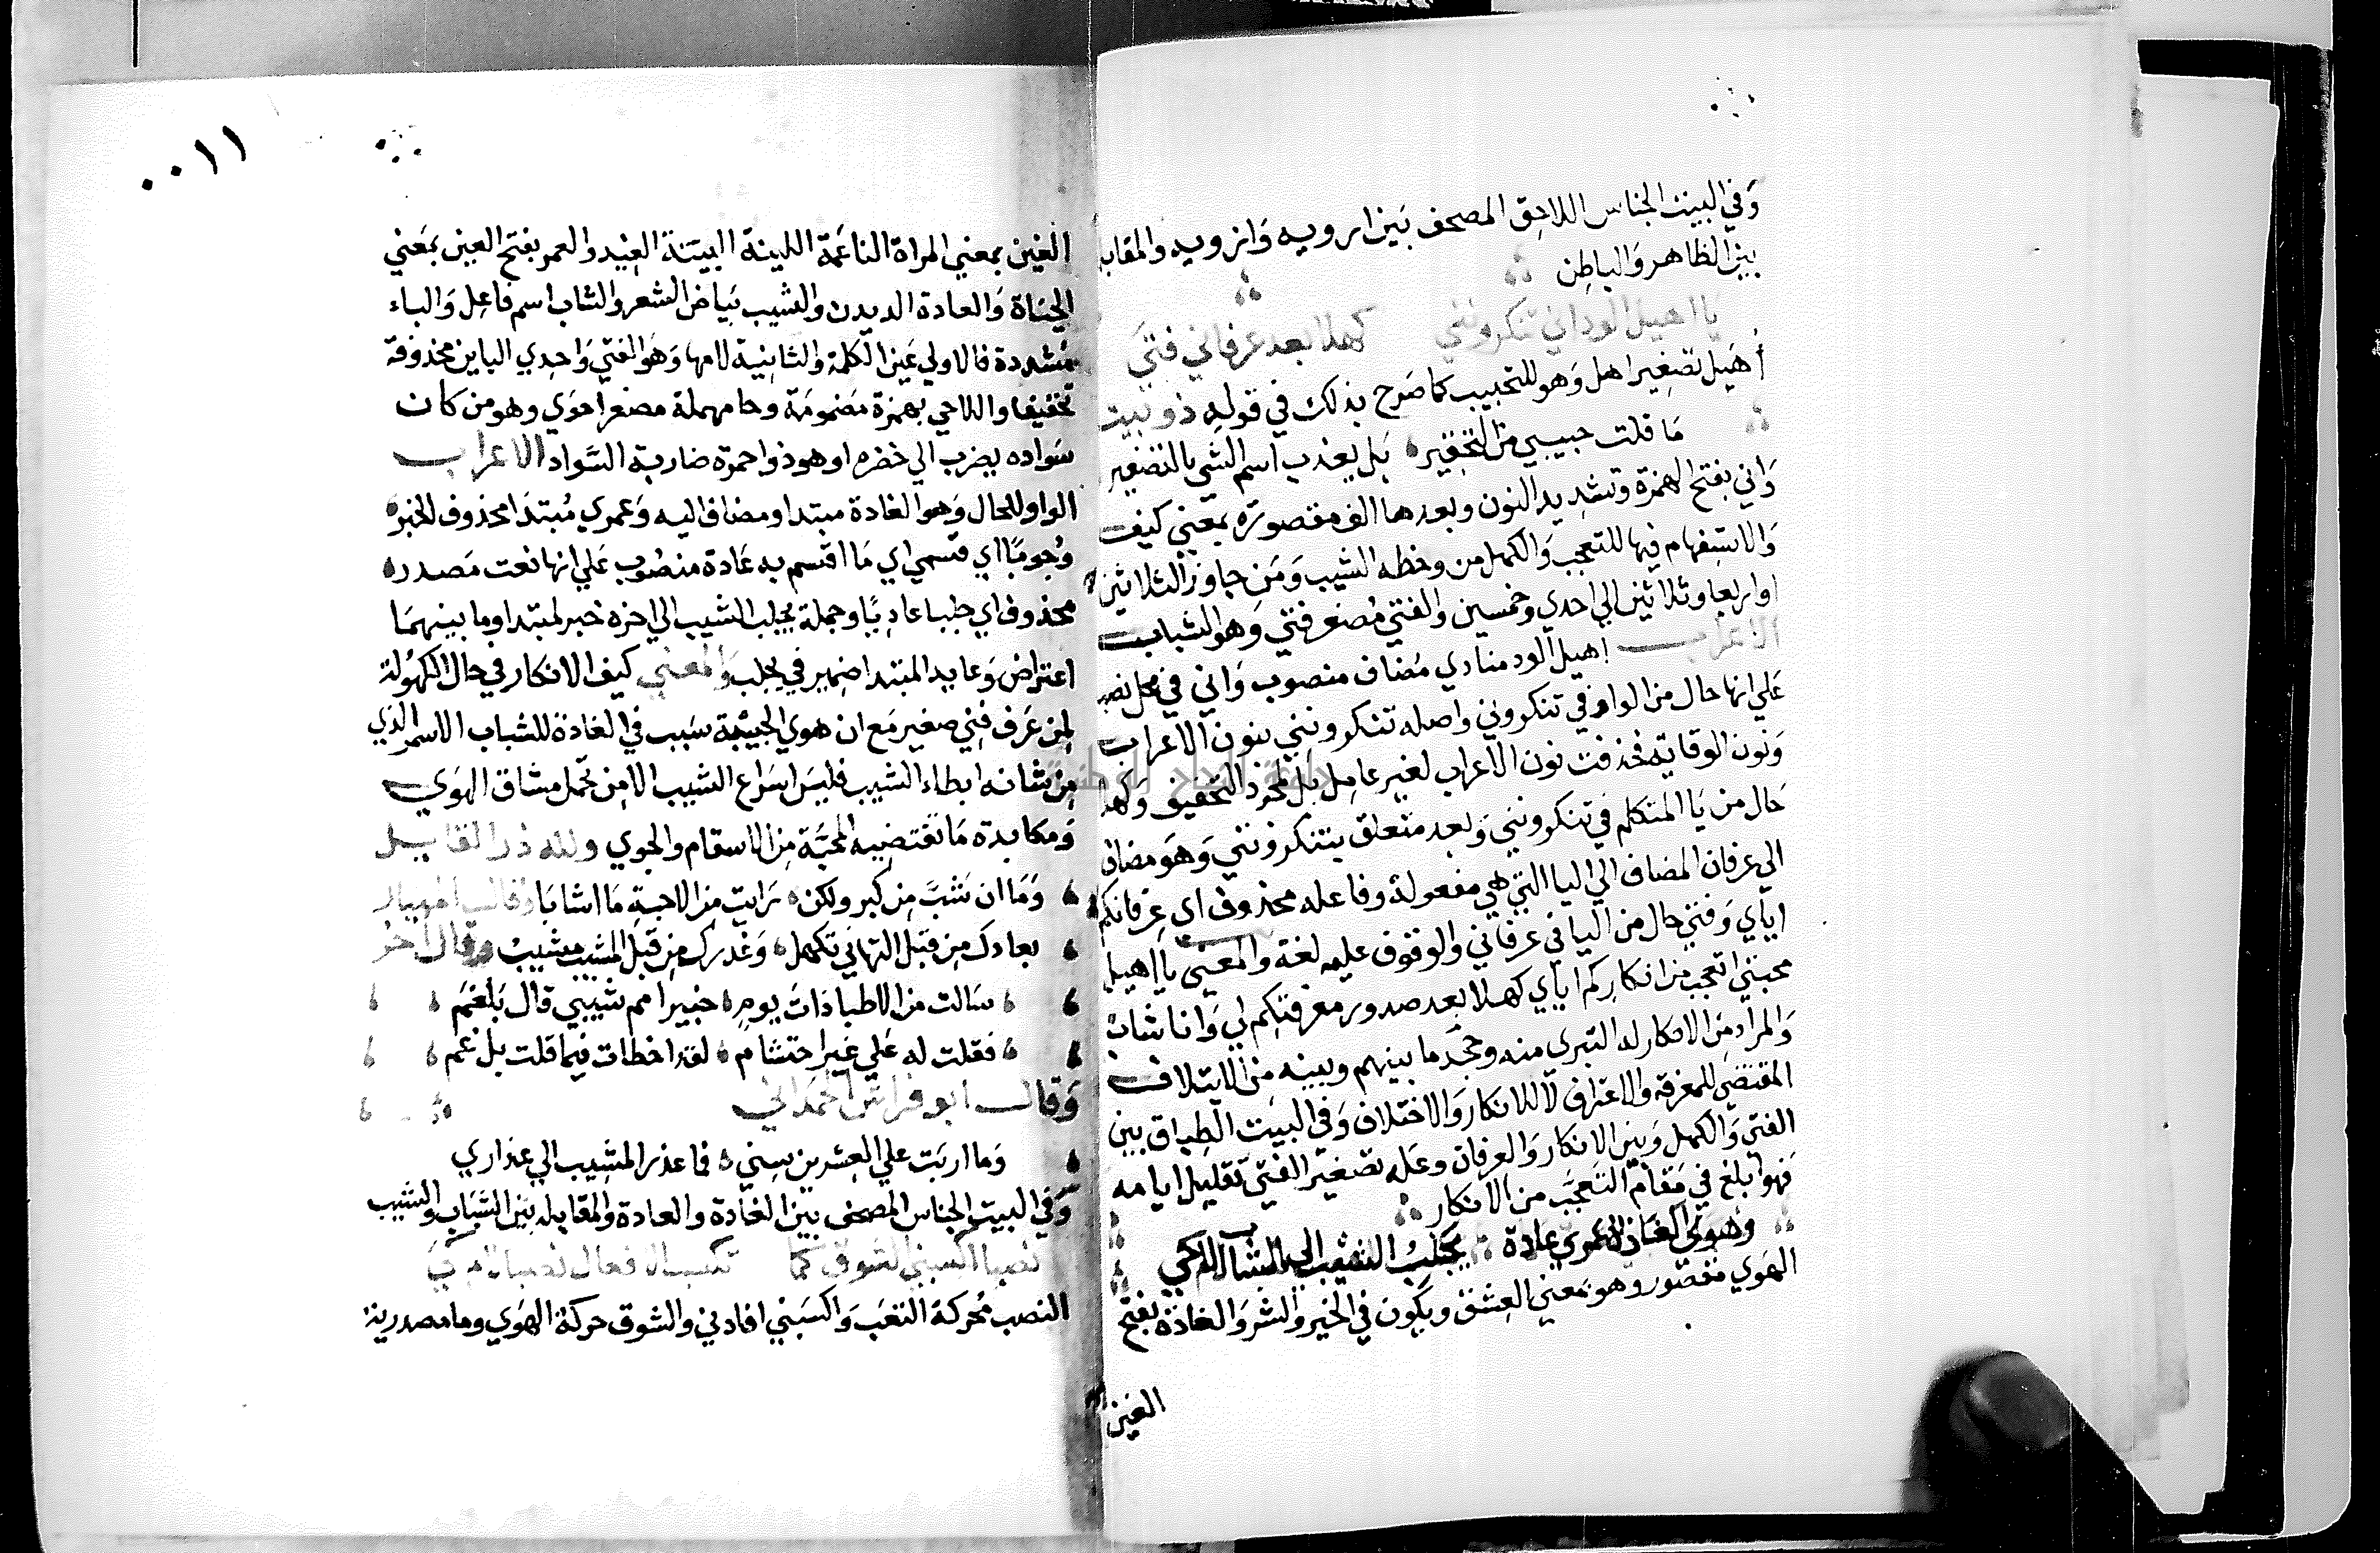 وَفي البيت الجناس اللاحِق المصحف بَين ارويه وَازويه والمقابله
بين الظاهر وَالباطِن
يا اهيل الود اني تنكرونني كهلا بعد عرفاني فتَي
أهَيل تصغِير اهل وَهو للتحبيب كما صَرح بذلك في قوله ذو بيت
مَا قلت حبيبي من التحقير بَل يعذب اسم الشي بالتصغير
وَاني بفتح الهمزة وتشديد النون وبعدها الف مقصورَه بمعَني كيف
وَالاستِفهام فيها للتعجب وَالكهل من وخطه الشيب وَمَن جاوز الثلاثين
او اربعا وثلاثين الي احدي وخمسين والفتي مُصغر فتي وَهو الشباب
الاعراب اهيل الود منادي مُضاف منصوب وَاني في محل نصب
عَلي انها حال من الواو في تنكروني واصله تنكرونني بنون الاعراب
وَنون الوقاية فحذفت نون الاعراب لغير عامِل بَل لمجرد التخفيف وَكهلا
حَال من يَا المتكلم في تنكرونني وَبعد متعلق بتنكرونني وَهوَ مضاف
الي عرفان المضاف الي اليا التي هي مفعوله وفاعله محذوف اي عِرفانكم
اياي وَفتي حال من اليا في عرفاني والوقوف عليه لغة والمعني يا اهيل
محبتي اتعجب من انكاركم اياي كهلا بعد صدور معرفتكم لي وَانا شاب
وَالمراد من الانكار له التبري منه وجحَد ما بينهم وبينه من الايتلاف
المقتضي للمعرفة والاعتراف لا للانكار وَالاختلاف وَفي البيَت الطِباق بين
الفتي وَالكهل وَبين الانكار وَالعِرفان وعَله تصغير الفتي تقليل ايامه
فهو ابلغ في مَقام التعجّب من الانكار
وهوي الغادة عمري عادة يجلب الشيب الي الشاب الاحي
الهَوي مقصور وهو بمَعني العِشق ويكون في الخير وَالشر وَالغادة بفتح
الغين
٠٠١١
الغين بمعني المراة الناعَمة اللينة البيّنة الغِيد والعمر بفتح العين بمَعني
الحيَاة وَالعادة الديدن والشيب بيَاض الشعر وَالشاب اسم فاعِل وَالباء
مُشددة فالاولي عَين الكلمة والثانِية لامها وَهو الفتي وَاحدي الباين محذوفة
تخفيفا واللاحي بهمزة مَضمومَة وحا مهملة مصغر احوَي وهو من كان
سَواده يضرب الي خضره او هو ذو احمرة ضاربة السَّواد الاعراب
الواو للحال وَهو الغادة مبتدا ومضاف اليه وَعمري مُبتدَا محذوف الخبر
وُجوبًا اي قسمي اي مَا اقسم به عَادة منصُوب عَلي انها نعت مَصدر
محذوف اي جلبا عاديًا وجملة يجلب الشيب الي اخره خبر لمبتدا وما بينهمَا
اعتراض وَعايد المبتدا ضمير في يجلب وَالمعني كيف الانكار في حال الكهُولة
لمن عَرف فتي صغير مَع ان هوي الحبيبة سَبب في الغادة للشباب الاسمر الذي
مِن شانه ابطاء الشيب فليسَ اسَراع الشيب الا مِن تحمل مشاق الهوَي
وَمكابدة مَا تقتضِيه المحبَّة مِن الاسقام والجوي ولله در القايل
وَمَا ان شبَّ مِن كبر ولكن رَايت من الاحبة مَا اشابَا وقال مهيار
بعادك مِن قبل التهاني تكهل وَغدرك مِن قبل المشيب مشِيب وقال اخر
سَالت من الاطبا ذاتَ يومٍ خبيرا مم شيبي قال بَلغَم
فقلت له عَلي غير احتشام لقد اخطات فيما قلت بل غم
وَقال ابو فراس الحمداني
وَما اربَت علي العِشرين سِني فما عذر المشِيب الي عذاري
وَفي البيت الجناس المصحف بين الغادة والعادة والمقابله بين الشبَاب والشيب
نصبا اكسبني الشوق كما تكسب الافعال نصبا لام كي
النصب مُحركة التعَب وَاكسَبني افادني والشوق حركة الهَوي وما مصدرية